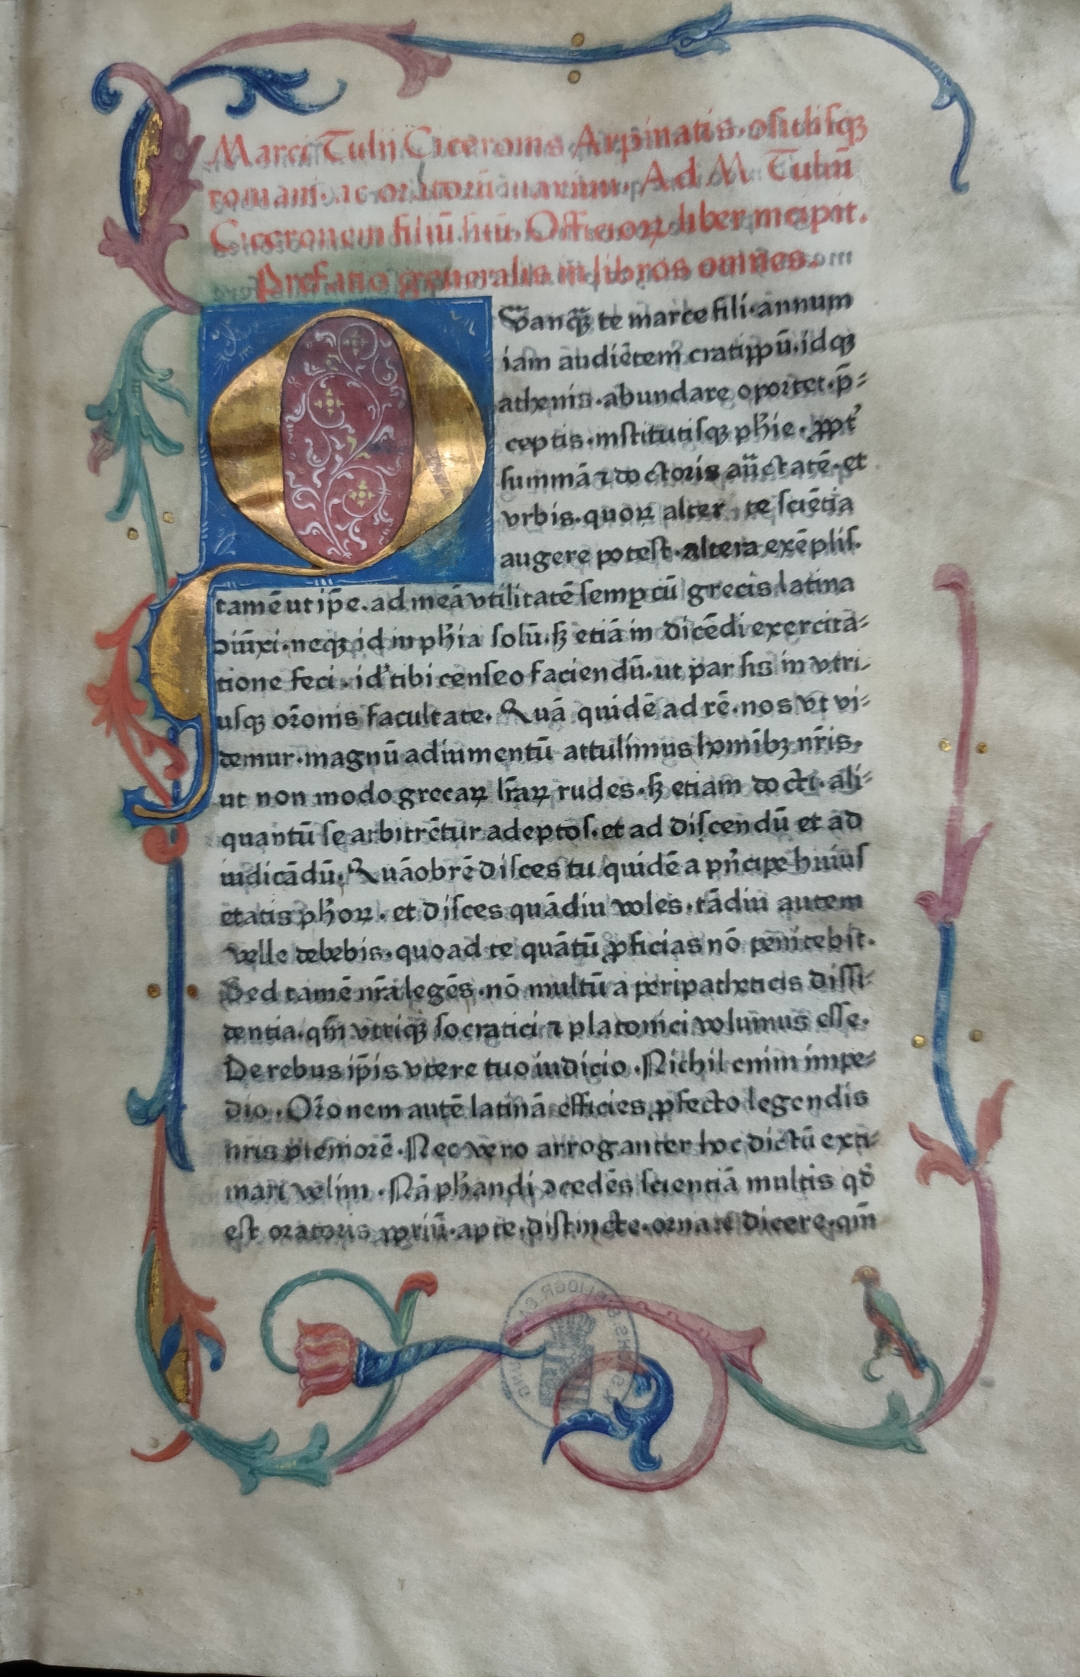 Marci Tulij Ciceronis Arpinatis. ↄsulisqꝫ
romani. ac oratorū maximi. Ad M. Tuliū
Ciceronem filiū suū. Officioꝝ. liber incipit.
Prefatio generalis in libros omnes.
Quanqꝫ te marce fili. annum
iam audiētem cratippū. idqꝫ
athenis. abundare oportet. p̄-
ceptis. institutisqꝫ phīe. ꝓpt᷑
summā ⁊ doctoris auctatē. et
vrbis. quoꝝ alter te sciētia
augere potest. altera exēplis.
tamē ut ip̄e. ad meā vtilitatē semp cū grecis latina
ↄiūxi. neqꝫ id in phīa solū. sꝫ etiā in dicēdi exercita-
tione feci. id' tibi censeo faciendū. ut par sis in vtri-
usqꝫ or̄onis facultate. Quā quidē ad rē. nos vt vi-
demur. magnū adiumentū attulimus homībꝫ nr̄is.
ut non modo grecaꝝ lr̄aꝝ rudes. sꝫ etiam docti. ali-
quantū se arbitrētur adeptos. et ad discendū et ad
iudicādū. Quāobrē disces tu quidē a pn̄cipe huius
etatis phoꝝ. et disces quādiu voles. tādiu autem
velle debebis. quoad te quātū ꝓficias nō penitebit.
Sed tamē nr̄a legēs. nō multū a peripatheticis dissi-
dentia. qm̄ vtriqꝫ socratici ⁊ platonici volumus esse.
De rebus ip̄is vtere tuo iudicio. Nichil enim impe-
dio. Or̄onem autē latinā efficies ꝓfecto legendis
nris pleniorē. Nec vero arroganter hoc dictū exti-
mari velim. Nā phandi ↄcedēs scientiā multis qd̄
est oratoris ꝓpriū. apte, distincte. ornate dicere. qm̄